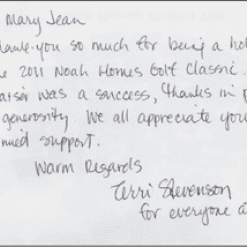 Mary Jean
Thank-you so much for being a
2011 Noah Homes Golf Classic.
was a success, thanks in
generosity We all appreciate
support.
Warm Regards
Terri Stevenson
for everyone